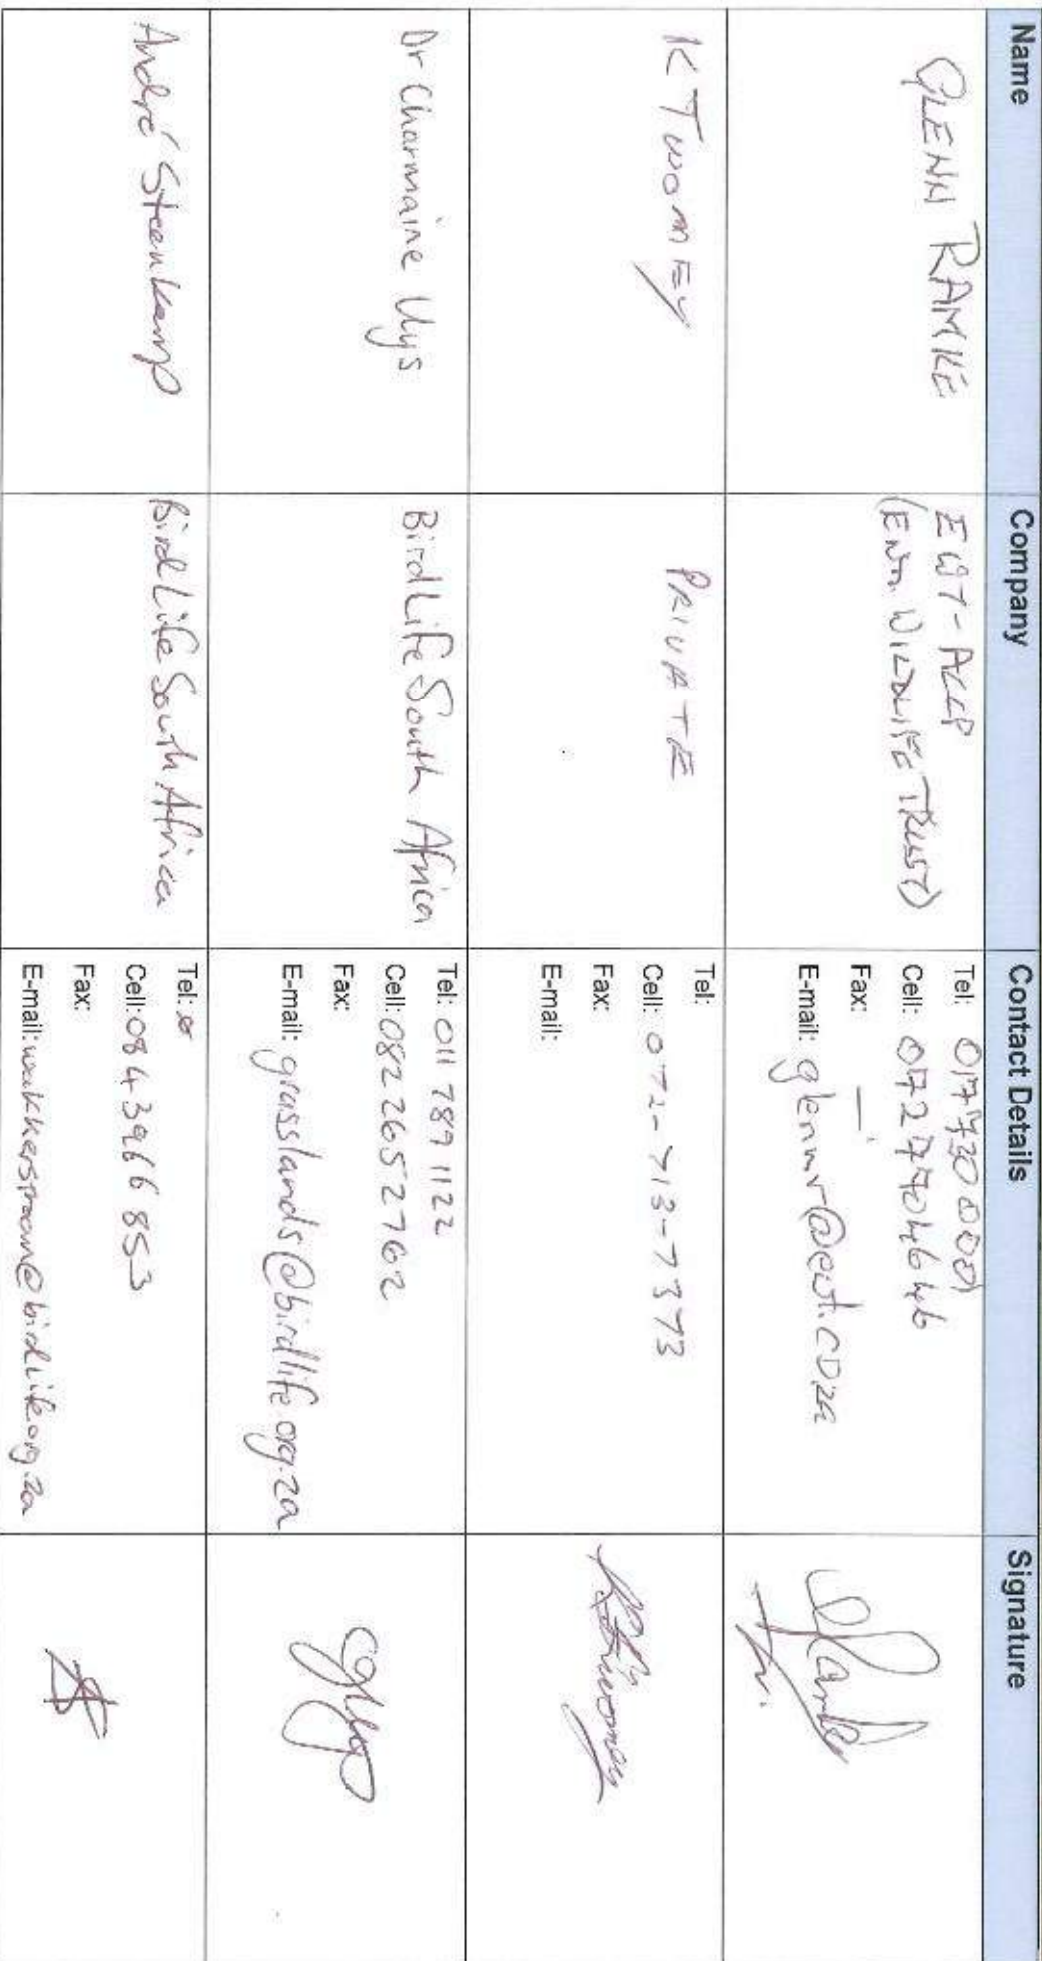 Name Company Contact Details Signature
GLENN RAMKE
EWT-ACCP
(END. WILDLIFE TRUST)
Tel: 017 730 0001
Cell:
Fax: —
E-mail: glennr@ewt.co.za
K TWOMEY
PRIVATE
Tel:
Cell: 072-713-7373
Fax:
E-mail:
Dr Charmaine Uys
BirdLife South Africa
Tel: 011 789 1122
Cell: 082 2652762
Fax:
E-mail: grasslands@birdlife.org.za
André Steenkamp
BirdLife South Africa
Tel:
Cell: 084 3966 853
Fax:
E-mail: wakkerstroom@birdlife.org.za